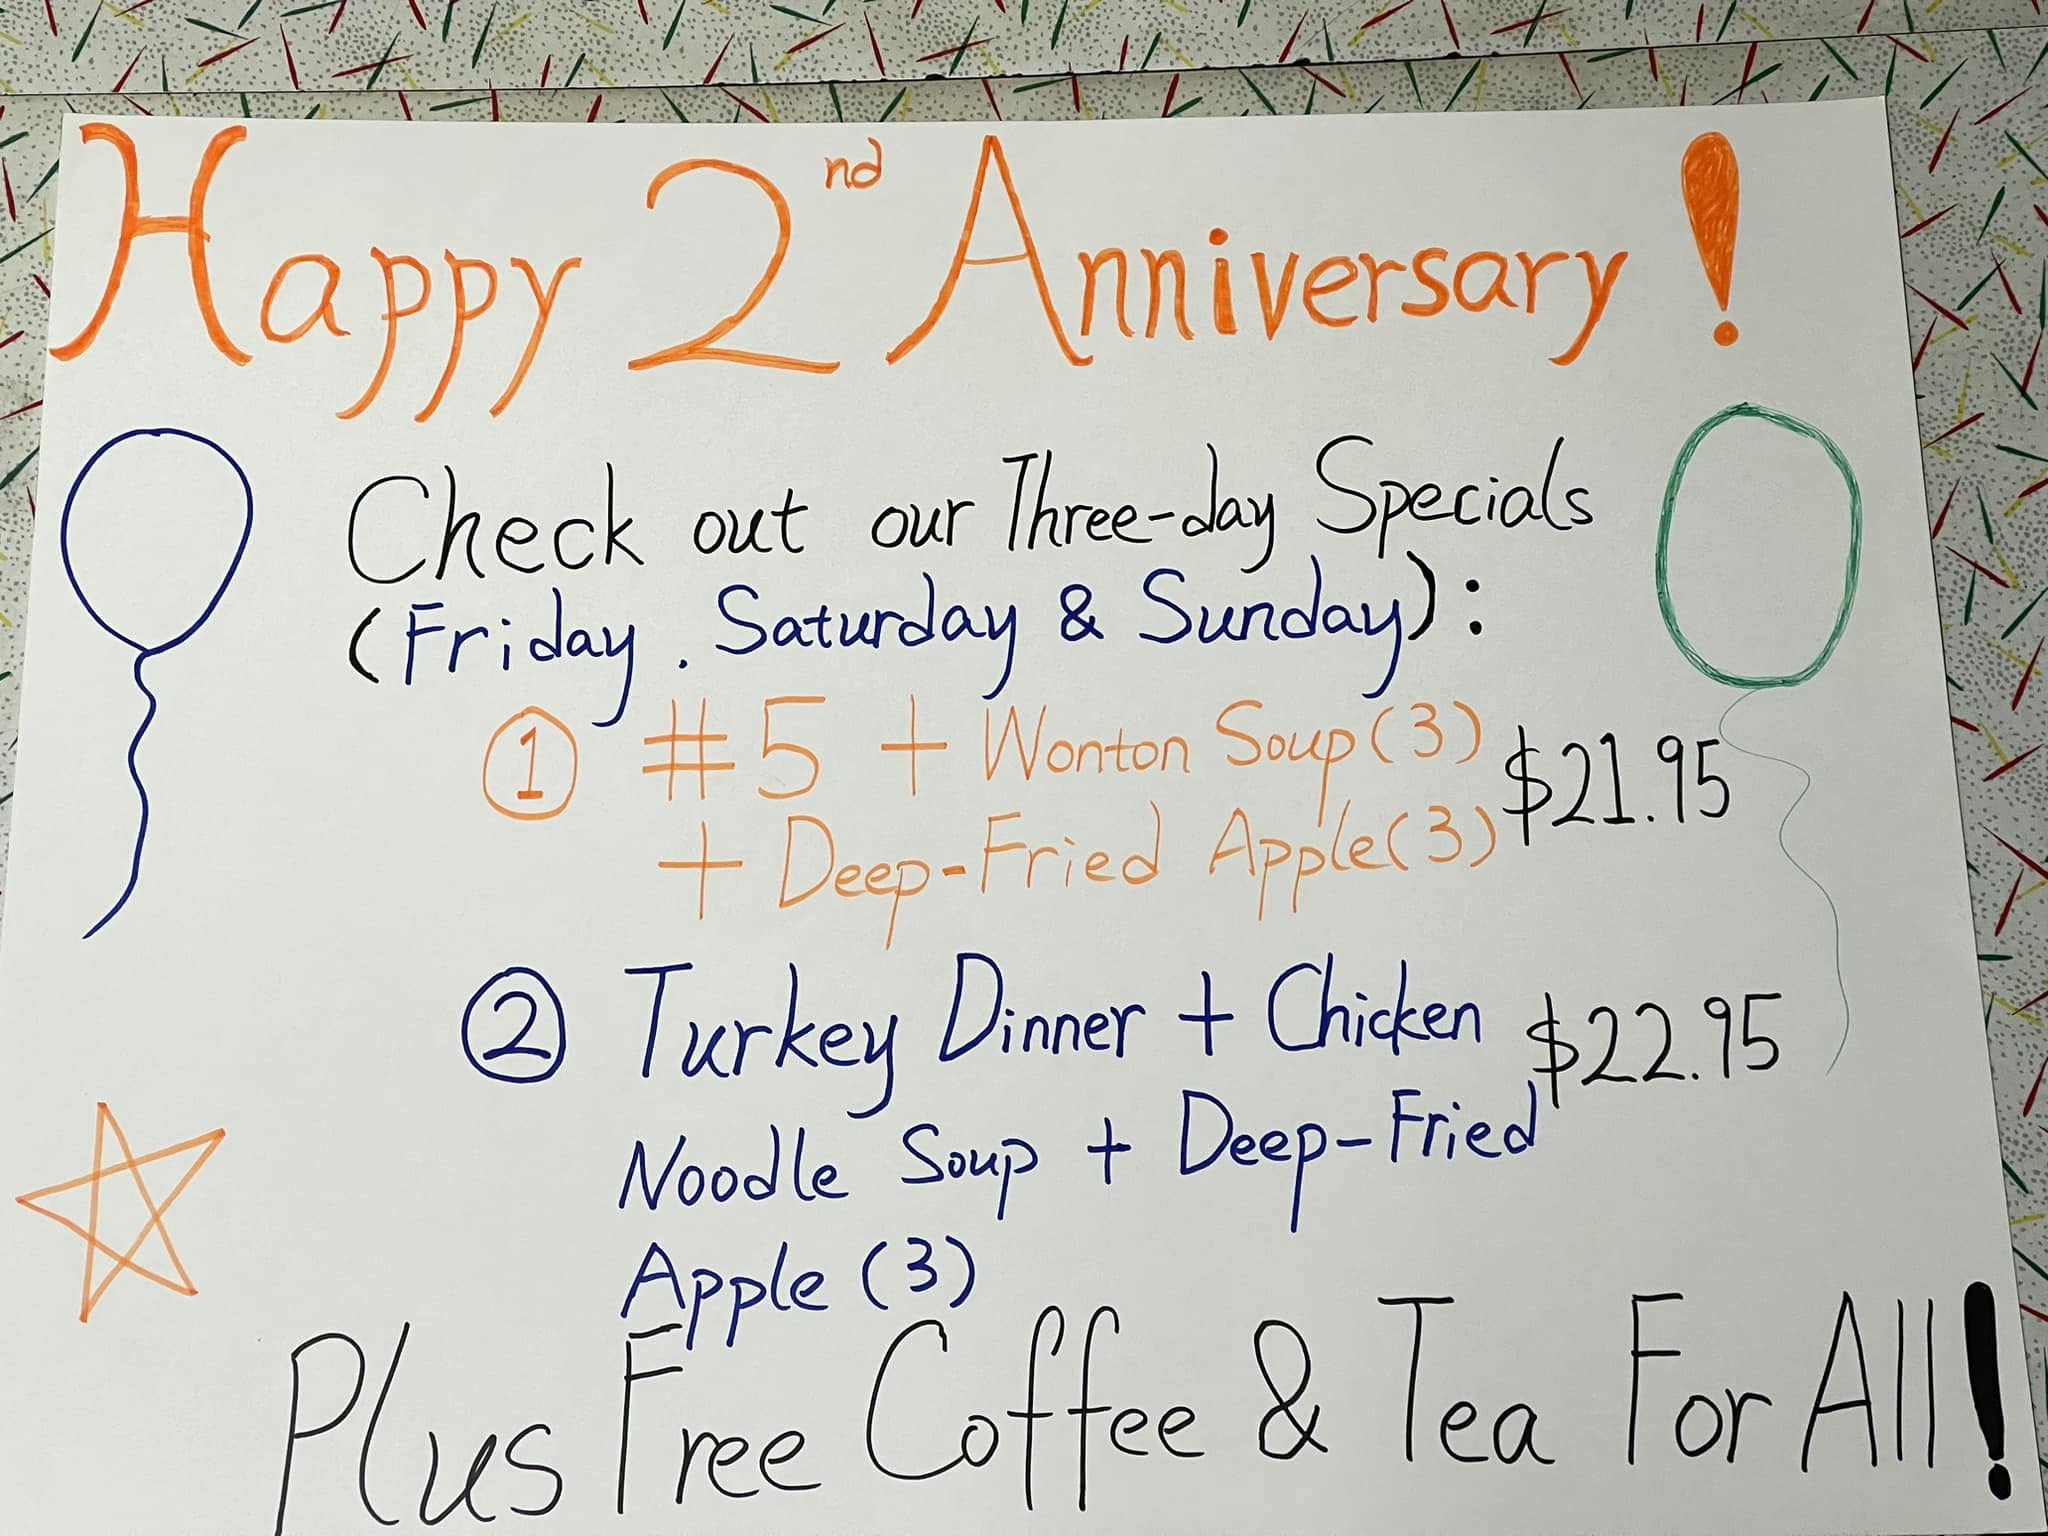 Happy 2nd Anniversary!
Check out our Three-day Specials
(Friday. Saturday & Sunday):
① #5 + Wonton Soup(3) $21.95
+ Deep-Fried Apple(3)
② Turkey Dinner + Chicken $22.95
Noodle Soup + Deep-Fried
Apple (3)
Plus Free Coffee & Tea For All!